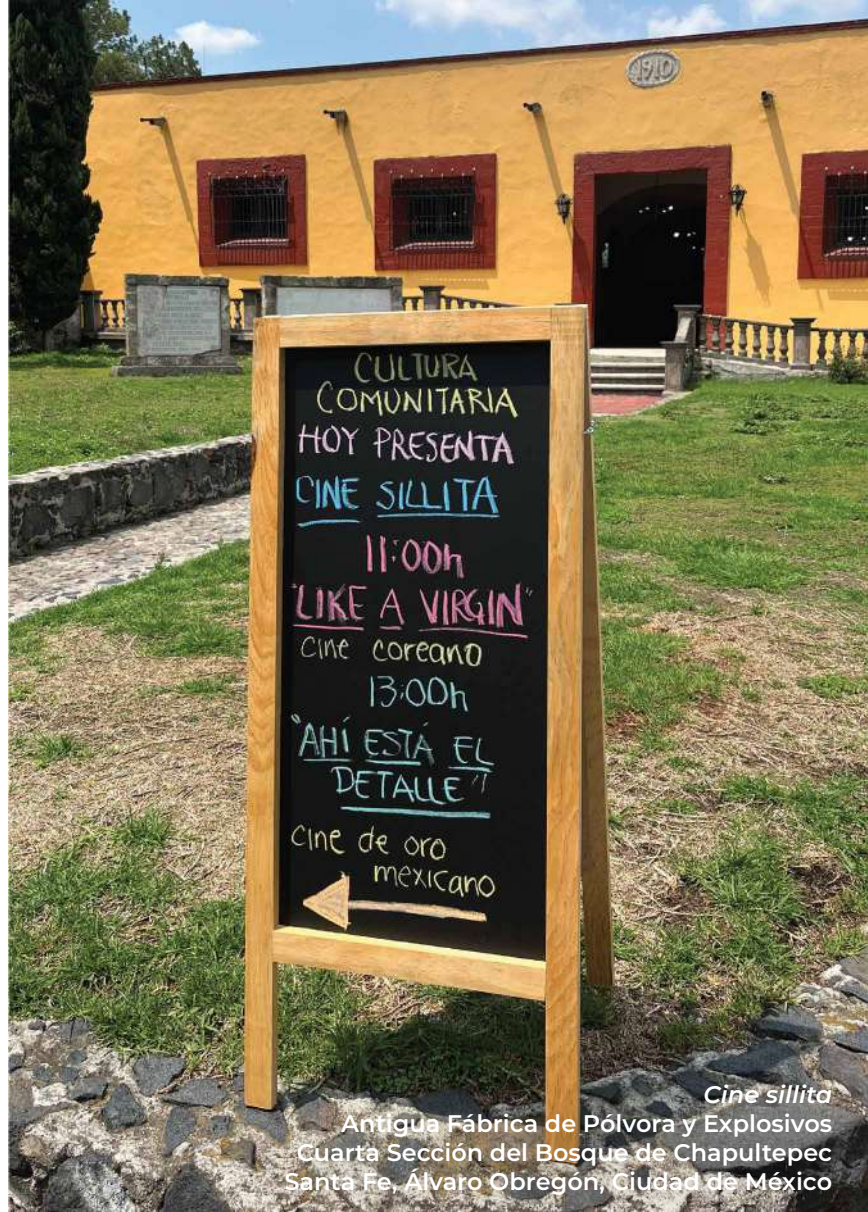 1910
CULTURA
COMUNITARIA
HOY PRESENTA
CINE SILLITA
11:00h
"LIKE A VIRGIN"
cine coreano
13:00h
"AHÍ ESTÁ EL
DETALLE"
cine de oro
mexicano
Cine sillita
Antigua Fábrica de Pólvora y Explosivos
Cuarta Sección del Bosque de Chapultepec
Santa Fe, Álvaro Obregón, Ciudad de México